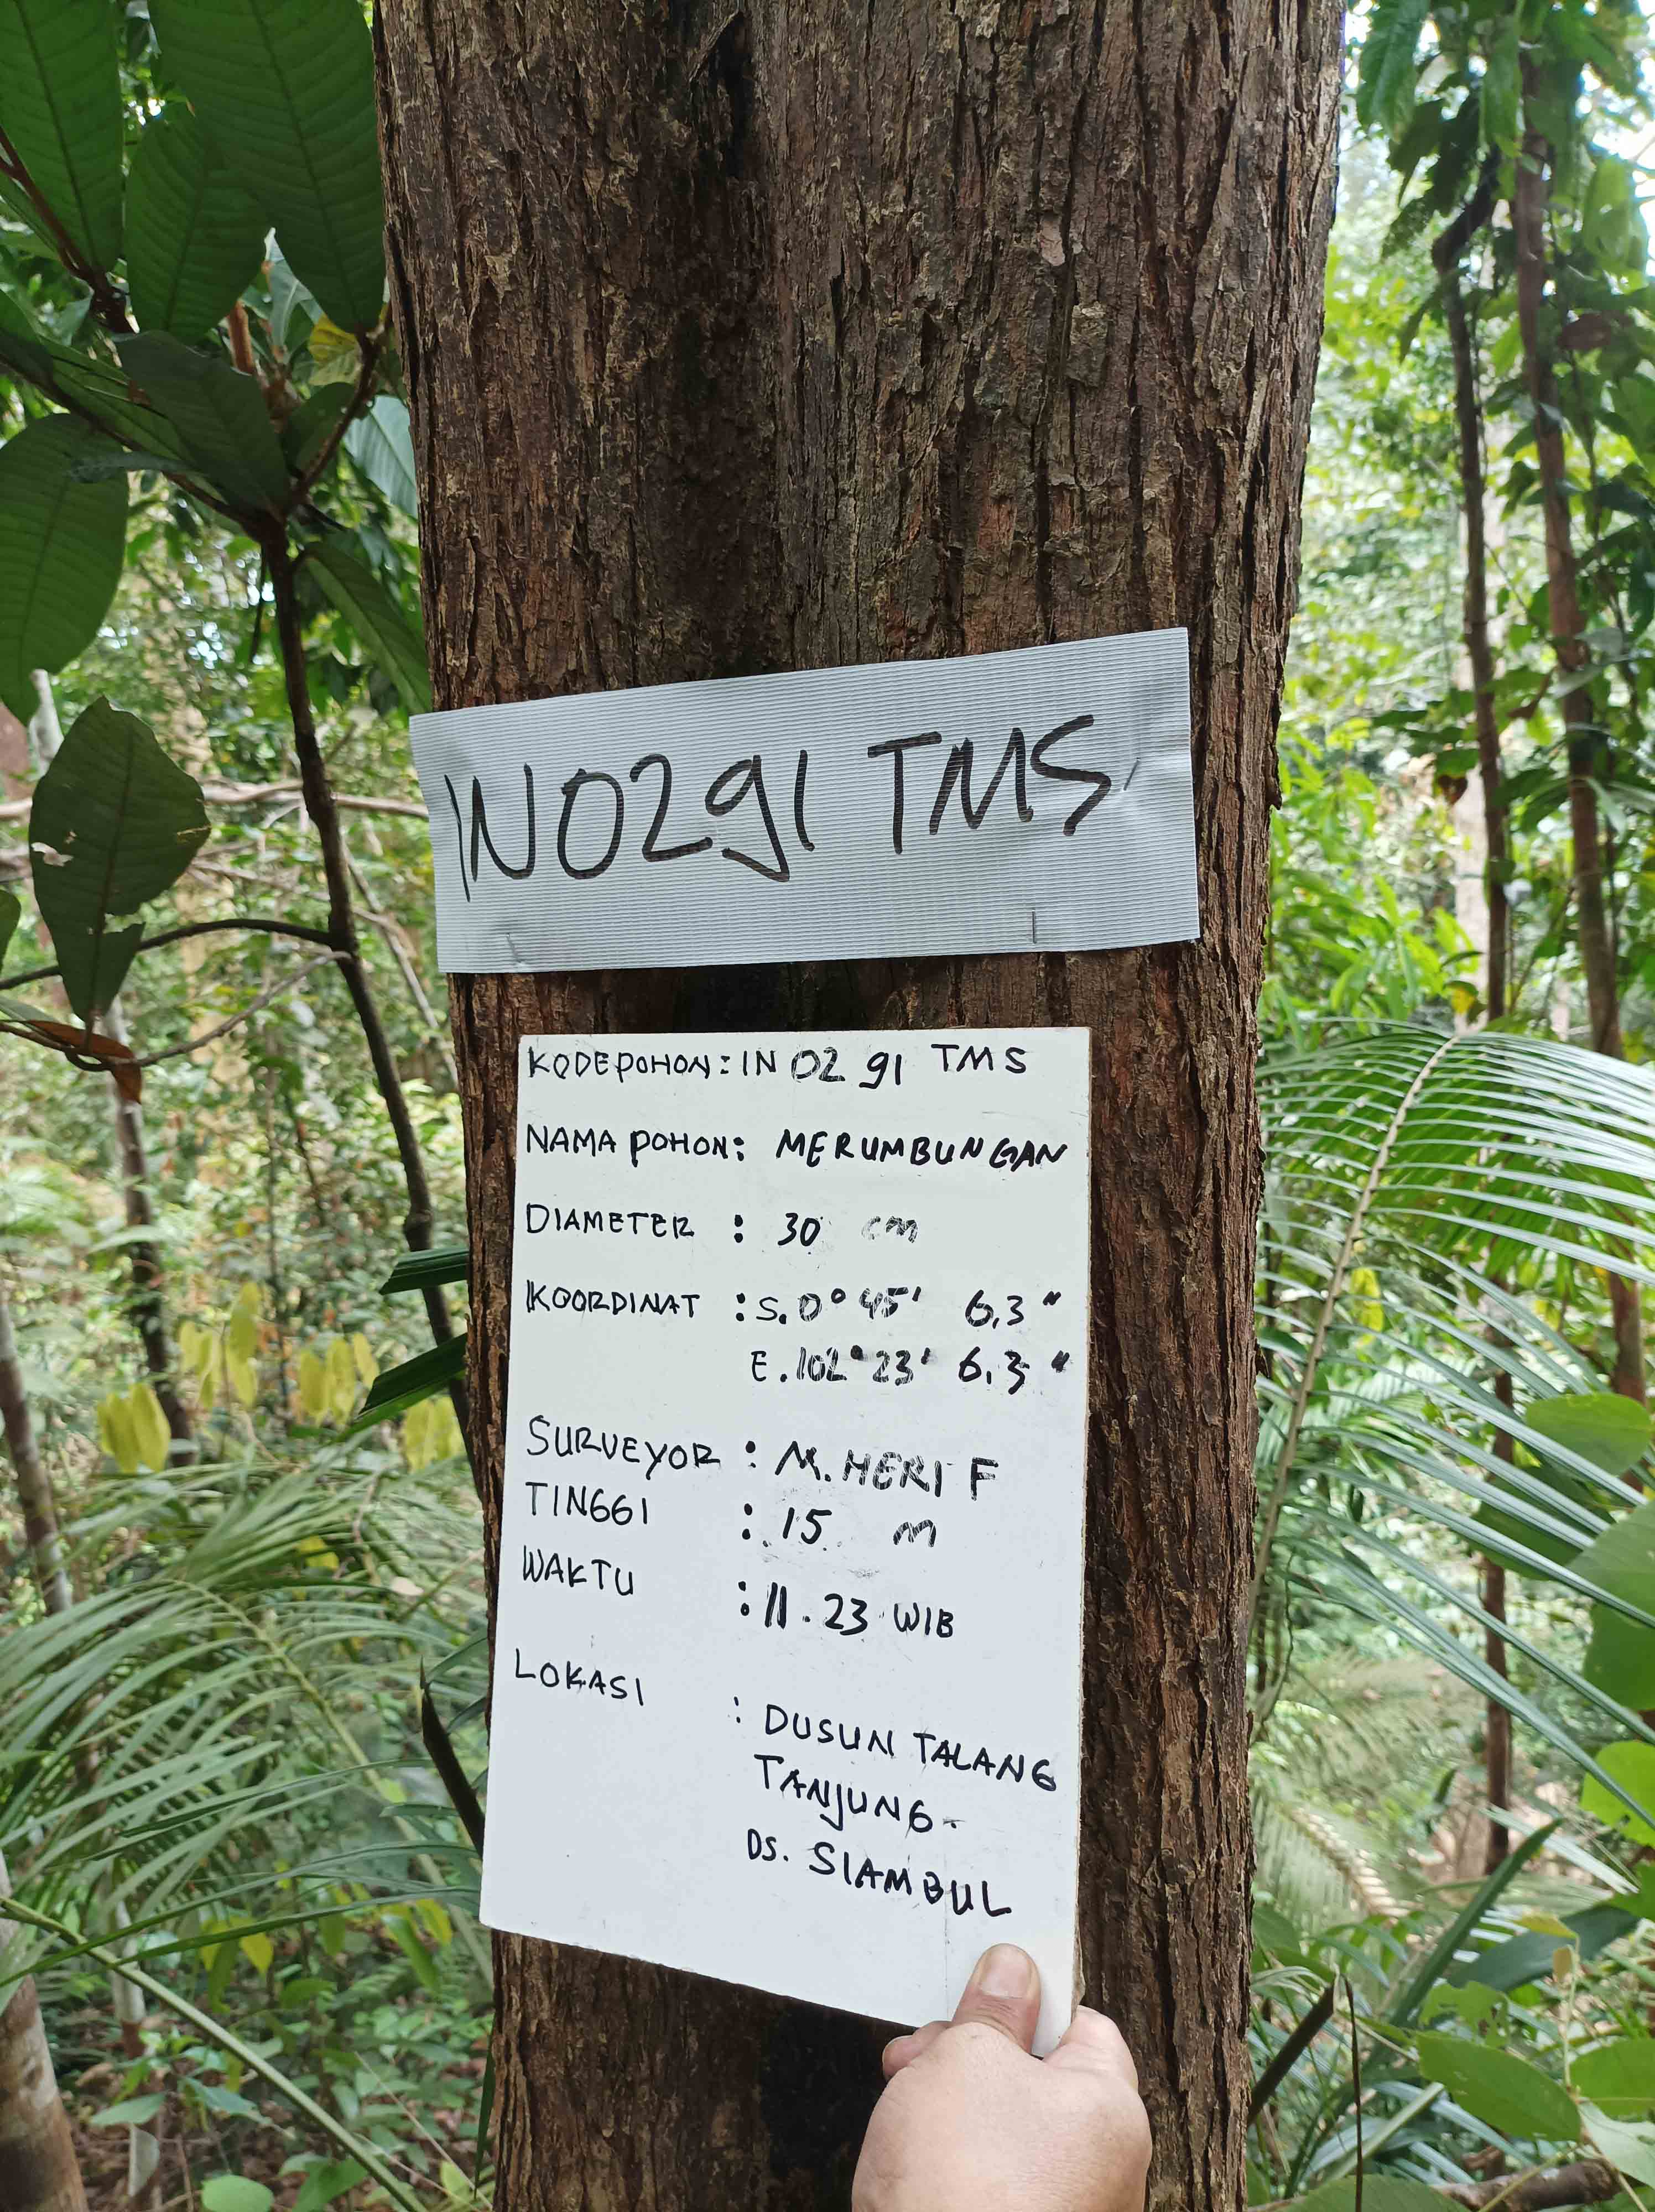 IN0291 TMS
KODE POHON : IN 02 91 TMS
NAMA POHON : MERUMBUNGAN
DIAMETER : 30 cm
KOORDINAT : S. 0° 45' 6,3 "
E. 102° 23' 6,3 "
SURVEYOR : M. HERI F
TINGGI : 15 m
WAKTU : 11 . 23 WIB
LOKASI : DUSUN TALANG
TANJUNG -
DS. SIAMBUL